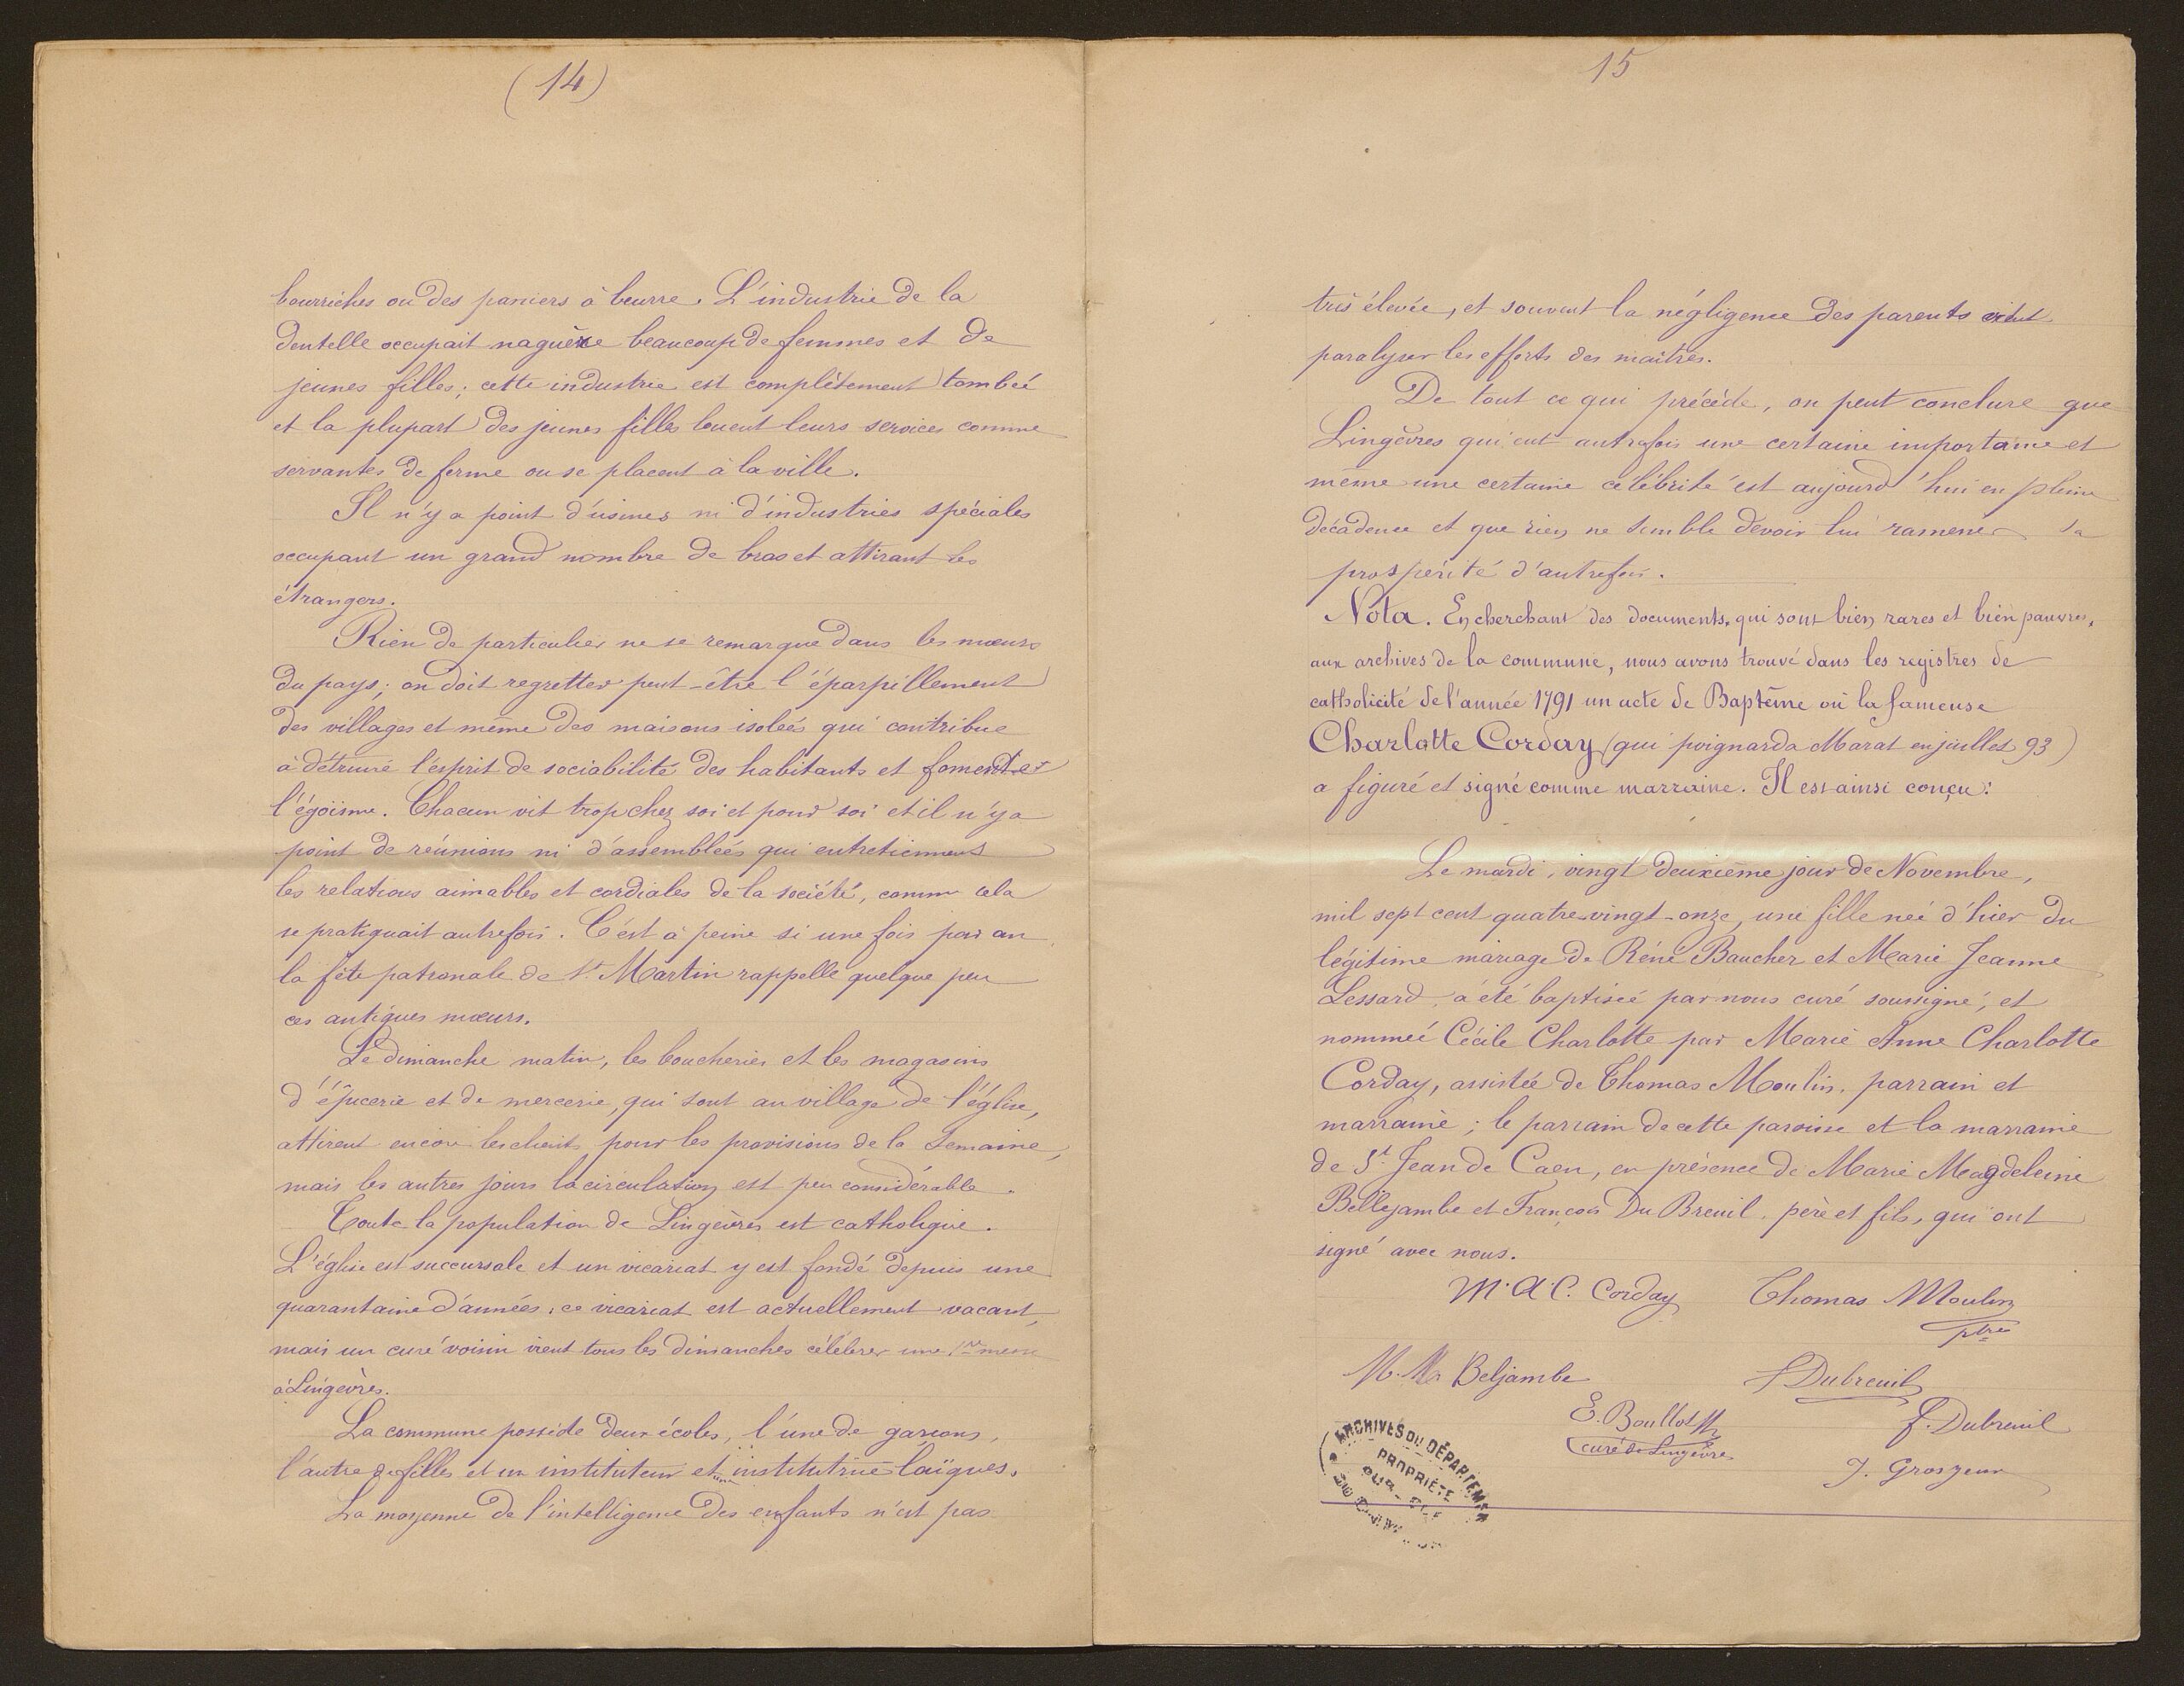 (14)
bourriches ou des paniers à beurre. L'industrie de la
dentelle occupait naguère beaucoup de femmes et de
jeunes filles; cette industrie est complètement tombée
et la plupart des jeunes filles louent leurs services comme
servantes de ferme ou se placent à la ville.
Il n'y a point d'usines ni d'industries spéciales
occupant un grand nombre de bras et attirant les
étrangers.
Rien de particulier ne se remarque dans les mœurs
du pays; on doit regretter peut-être l'éparpillement
des villages et même des maisons isolées qui contribue
à détruire l'esprit de sociabilité des habitants et fomenter
l'égoïsme. Chacun vit trop chez soi et pour soi et il n'y a
point de réunions ni d'assemblées qui entretiennent
les relations aimables et cordiales de la société, comme cela
se pratiquait autrefois. C'est à peine si une fois par an
la fête patronale de St Martin rappelle quelque peu
ces antiques mœurs.
Le dimanche matin, les boucheries et les magasins
d'épicerie et de mercerie, qui sont au village de l'église,
attirent encore les clients pour les provisions de la semaine,
mais les autres jours la circulation est peu considérable.
Toute la population de Lingèvres est catholique.
L'église est succursale et un vicariat y est fondé depuis une
quarantaine d'années; ce vicariat est actuellement vacant,
mais un curé voisin vient tous les dimanches célébrer une 1re messe
à Lingèvres.
La commune possède deux écoles, l'une de garçons,
l'autre de filles et un instituteur et une institutrice laïques.
La moyenne de l'intelligence des enfants n'est pas
15
très élevée, et souvent la négligence des parents vient
paralyser les efforts des maîtres.
De tout ce qui précède, on peut conclure que
Lingèvres qui eut autrefois une certaine importance et
même une certaine célébrité est aujourd'hui en pleine
décadence et que rien ne semble devoir lui ramener sa
prospérité d'autrefois.
Nota. En cherchant des documents, qui sont bien rares et bien pauvres,
aux archives de la commune, nous avons trouvé dans les registres de
catholicité de l'année 1791 un acte de Baptême où la fameuse
Charlotte Corday (qui poignarda Marat en juillet 93)
a figuré et signé comme marraine. Il est ainsi conçu:
Le mardi, vingt deuxième jour de Novembre,
mil sept cent quatre-vingt-onze, une fille née d'hier du
légitime mariage de Réné Baucher et Marie Jeanne
Lessard, a été baptisée par nous curé soussigné, et
nommée Cécile Charlotte par Marie Anne Charlotte
Corday, assistée de Thomas Moulin, parrain et
marraine; le parrain de cette paroisse et la marraine
de St Jean de Caen, en présence de Marie Magdeleine
Bellejambe et François Du Breuil, père et fils, qui ont
signé avec nous.
M. A. C. Corday Thomas Moulin
ptre
M. M. Beljambe F Dubreuil
E. Boullot f. Dubreuil
curé de Lingèvres
J. Grosyeux
ARCHIVES DU DÉPARTEMENT
PROPRIÉTÉ